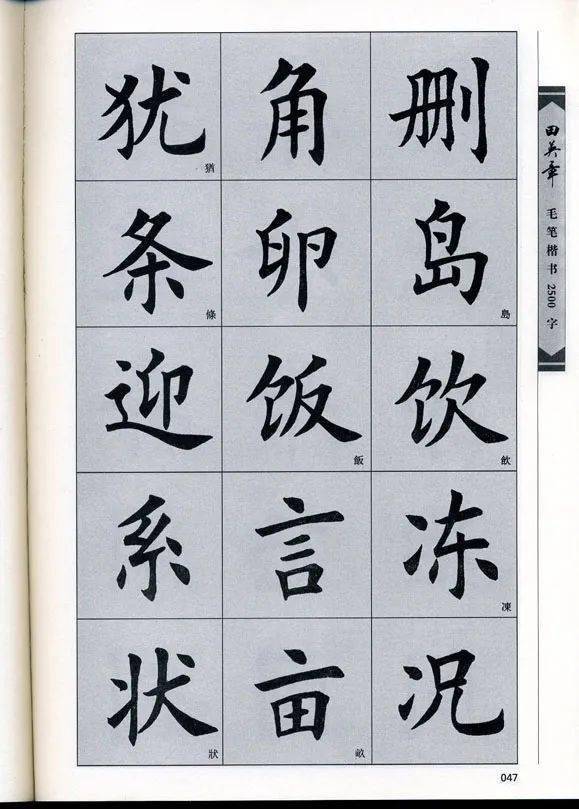 犹 角 删
猶
条 卵 岛
條 島
迎 饭 饮
飯 飲
系 言 冻
凍
状 亩 况
狀 畝
田英章
毛笔楷书2500字
047